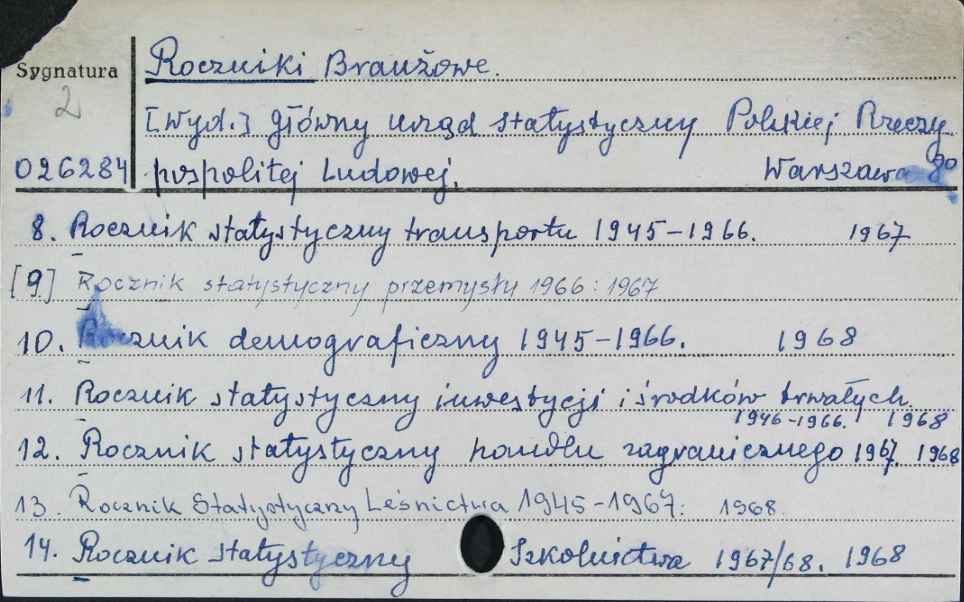 Sygnatura
2
026284
Roczniki Branżowe.
[Wyd.] Główny Urząd Statystyczny Polskiej Rzeczy
pospolitej Ludowej. Warszawa
8. Rocznik statystyczny transportu 1945-1966. 1967
[9] Rocznik statystyczny przemysłu 1966: 1967
10. Rocznik demograficzny 1945-1966. 1968
11. Rocznik statystyczny inwestycji i środków trwałych.
1946-1966. 1968
12. Rocznik statystyczny handlu zagranicznego 1967. 1968
13. Rocznik Statystyczny Leśnictwa 1945-1967: 1968
14. Rocznik statystyczny Szkolnictwa 1967/68. 1968